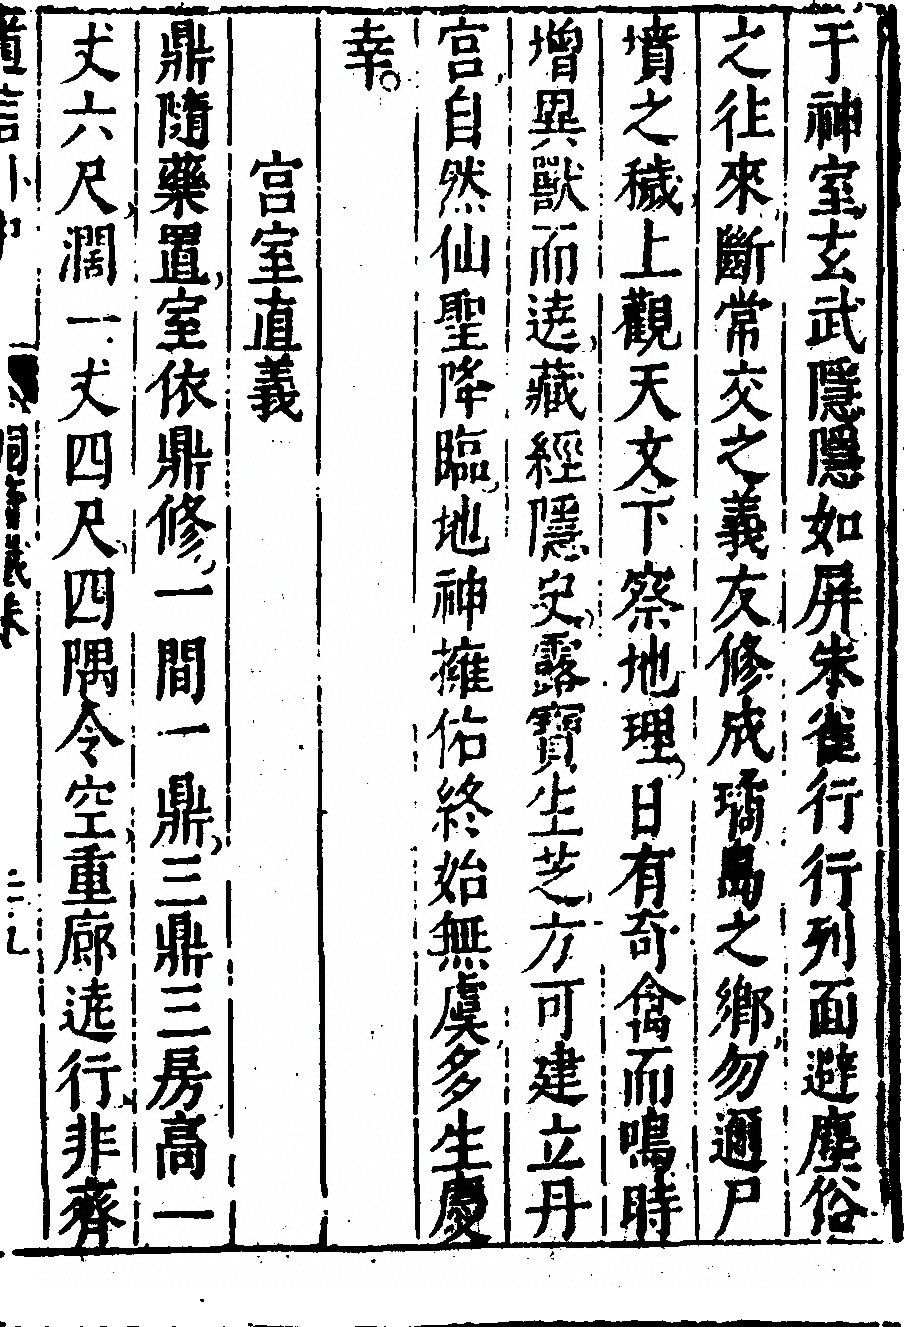 于神室玄武隱隱如屏朱雀行行列面避塵俗
之徃來斷常交之義友修成璚島之鄉勿邇尸
墳之穢上觀天文下察地理日有奇禽而鳴時
增異獸而遶藏經隱史露寶生芝方可建立丹
宫自然仙聖降臨地神擁佑終始無虞多生慶
幸
宫室直義
鼎隨藥置室依鼎修一間一鼎三鼎三房高一
丈六尺濶一丈四尺四隅令空重廊遶行非齊